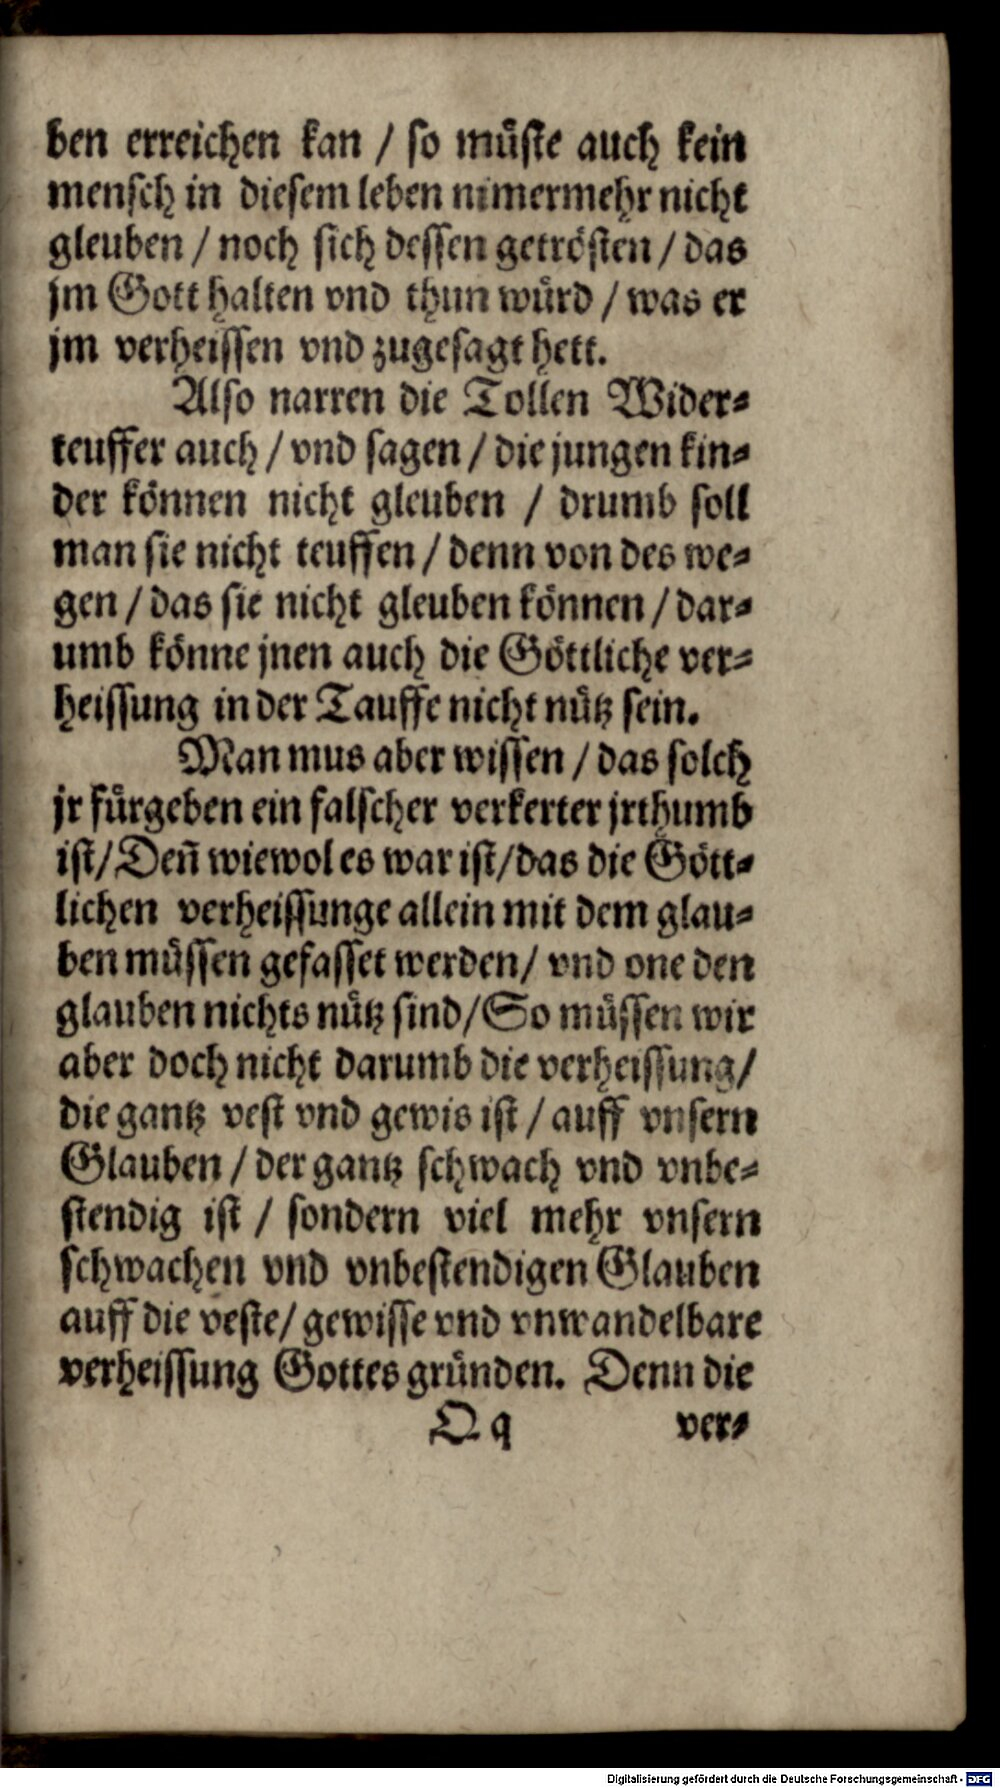 ben erreichen kan / so müste auch kein
mensch in diesem leben nimermehr nicht
gleuben / noch sich dessen getrösten / das
jm Gott halten vnd thun würd / was er
jm verheissen vnd zugesagt hett.
Also narren die Tollen Wider⸗
teuffer auch / vnd sagen / die jungen kin⸗
der können nicht gleuben / drumb soll
man sie nicht teuffen / denn von des we⸗
gen / das sie nicht gleuben können / dar⸗
umb könne jnen auch die Göttliche ver⸗
heissung in der Tauffe nicht nütz sein.
Man mus aber wissen / das solch
jr fürgeben ein falscher verkerter jrthumb
ist / Deñ wiewol es war ist / das die Gött⸗
lichen verheissunge allein mit dem glau⸗
ben müssen gefasset werden / vnd one den
glauben nichts nütz sind / So müssen wir
aber doch nicht darumb die verheissung /
die gantz vest vnd gewis ist / auff vnsern
Glauben / der gantz schwach vnd vnbe⸗
stendig ist / sondern viel mehr vnsern
schwachen vnd vnbestendigen Glauben
auff die veste / gewisse vnd vnwandelbare
verheissung Gottes gründen. Denn die
Q q ver⸗
Digitalisierung gefördert durch die Deutsche Forschungsgemeinschaft - DFG